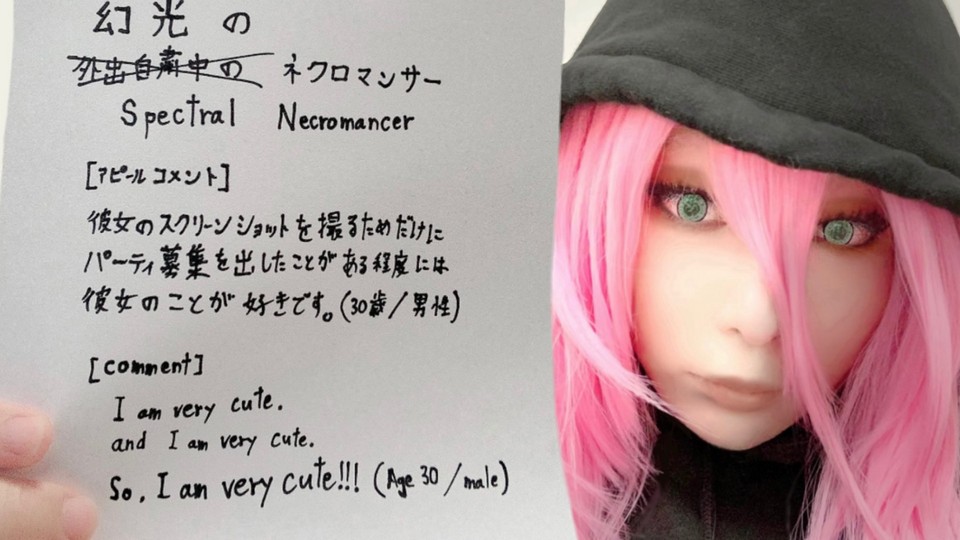 幻光の
外出自粛中の ネクロマンサー
Spectral Necromancer
[アピールコメント]
彼女のスクリーンショットを撮るためだけに
パーティ募集を出したことがある程度には
彼女のことが好きです。(30歳/男性)
[comment]
I am very cute.
and I am very cute.
So, I am very cute!!! (Age 30 / male)